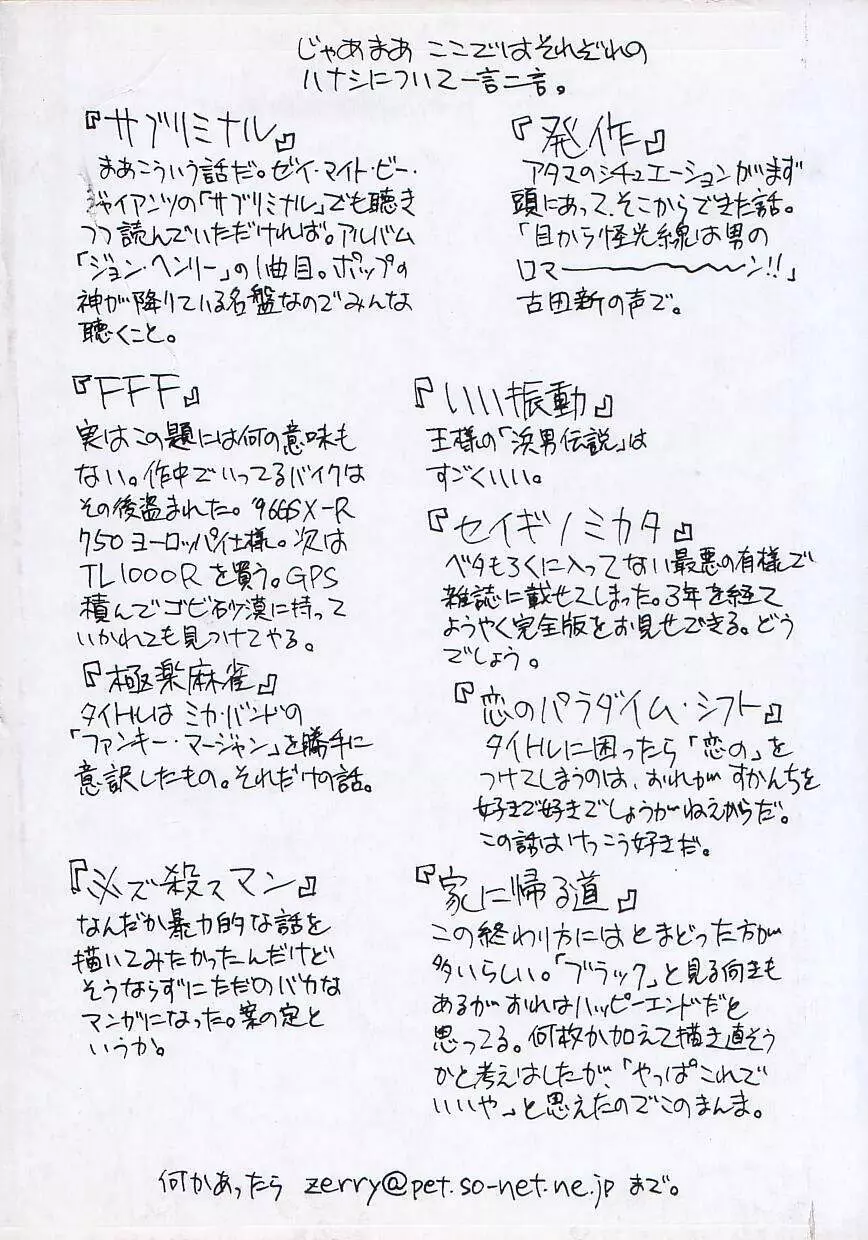 じゃあまあ ここではそれぞれの
ハナシについて一言二言。
『サブリミナル』
まあこういう話だ。ゼイ・マイト・ビー・
ジャイアンツの「サブリミナル」でも聴き
つつ読んでいただければ。アルバム
「ジョン・ヘンリー」の1曲目。ポップの
神が降りている名盤なのでみんな
聴くこと。
『発作』
アタマのシチュエーションがまず
頭にあって、そこからできた話。
「目から怪光線は男の
ロマーーーーン!!」
古田新の声で。
『FFF』
実はこの題には何の意味も
ない。作中でいってるバイクは
その後盗まれた。'96GSX-R
750ヨーロッパ仕様。次は
TL1000Rを買う。GPS
積んでゴビ砂漠に持って
いかれても見つけてやる。
『いい振動』
王様の「浜男伝説」は
すごくいい。
『セイギノミカタ』
ベタもろくに入ってない最悪の有様で
雑誌に載せてしまった。3年を経て
ようやく完全版をお見せできる。どう
でしょう。
『極楽麻雀』
タイトルはミカ・バンドの
「ファンキー・マージャン」を勝手に
意訳したもの。それだけの話。
『恋のパラダイム・シフト』
タイトルに困ったら「恋の」を
つけてしまうのは、おれがすかんちを
好きで好きでしょうがねえからだ。
この話はけっこう好きだ。
『必ズ殺スマン』
なんだか暴力的な話を
描いてみたかったんだけど
そうならずにただのバカな
マンガになった。案の定と
いうか。
『家に帰る道』
この終わり方にはとまどった方が
多いらしい。「ブラック」と見る向きも
あるがおれはハッピーエンドだと
思ってる。何枚か加えて描き直そう
かと考えはしたが、「やっぱこれで
いいや」と思えたのでこのまんま。
何かあったら zerry@pet.so-net.ne.jp まで。